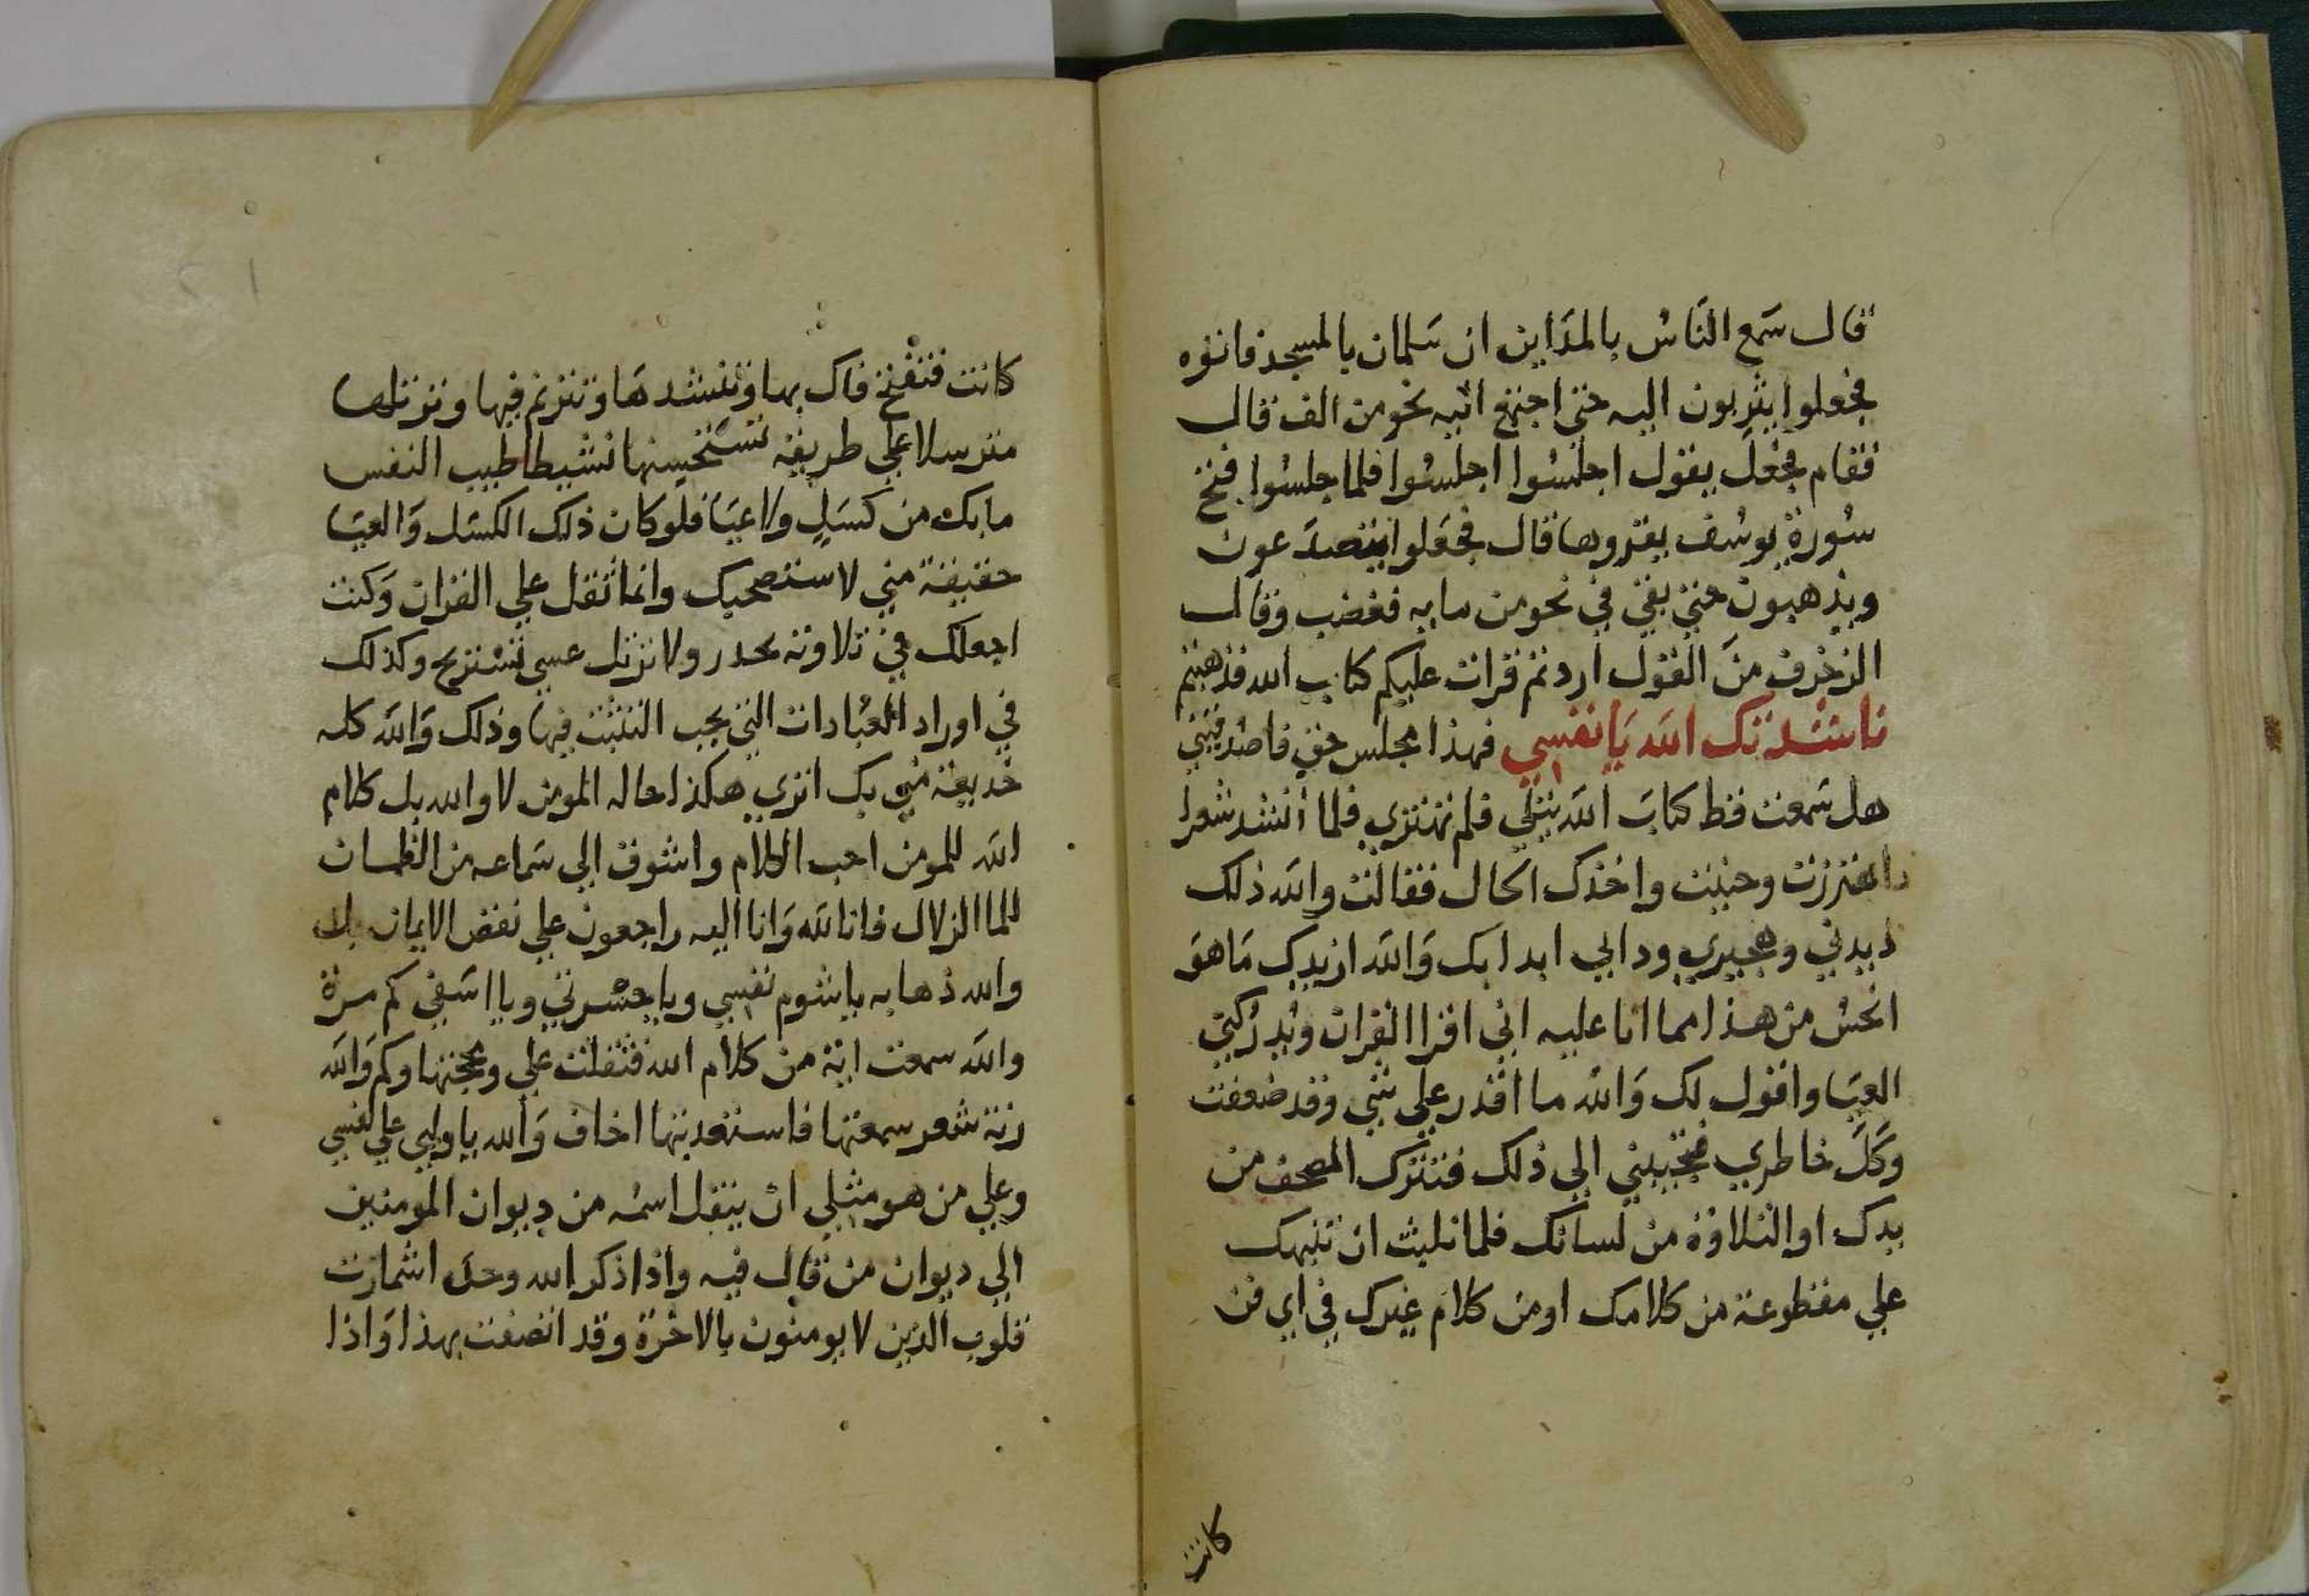 قال سَمع النَاسُ بالمدَاين ان سَلمان بالمسجد فاتوه
فجعلوا يثربون اليه حتى اجتمع اليه نحو من الف قال
فقام فجعَل يقول اجلسُوا اجلسُوا فلما جلسُوا فتح
سُورة يوسُف يقروها قال فجعَلوا يتصدَعون
ويذهبون حتى بقي في نحو من مايه فغضب وقال
الزخرف منَ القول اردتم قرات عليكم كتاب الله فذهبتم
ناشدتك اللهَ يَا نفسي فهذا مجلس حق فاصدقيني
هل سَمعت قط كتابَ اللهَ يتلي فلم تهتزي فلما انشد شعرا
اهتززت وحننت واخذك الحال فقالت والله ذلك
ديدني وهجيري ودابي ابدا بك وَاللهَ ازيدك مَا هوَ
انحسُ من هذا مما انا عليه اني اقرا القران ويُدركني
العيَا واقول لك وَاللهُ ما اقدر علي شي وقد ضعفت
وَكَلَ خاطري فتجيبني الي ذلك فتترك المصحف من
يدك او التلاوة من لسانك فلما تلبث ان تنبهك
علي مقطوعة من كلامك او من كلام غيرك في اي فن
كانت
كانت فتفتح فاك بها وتنشدهَا وتترنم فيها وترتلها
مترسلا علي طريقة تستحسنها نشيطا طيب النفس
ما بك من كسَلٍ ولا عيَا فلو كان ذلك الكسَل وَالعيَا
حقيقة مني لاستصحبك وانما ثقل علي القران وَكنت
اجعلك في تلاوته بحدر ولا ترتل عسي تشتريح وكذلك
في اوراد العبَادات التي يجب التثبت فيها وذلك وَاللهَ كله
خديعة مني بك اتري هكذا حاله المومن لا والله بل كلام
الله للمومن احب الكلام واشوق الي سَماعه من الظمان
للما الزلال فانا لله وَانا اليه راجعون علي نقص الايمان بل
والله ذهابه يا شوم نفسي ويا حسْرتي ويا اسَفي كم مرة
واللهَ سمعت اية من كلام الله فثقلت علي ومجتها وكم وَاللهَ
رنة شعر سمعتها فاستعدبتها اخاف وَالله يا وليي علي نفسي
وعلي من هو مثلي ان ينقل اسمُه من ديوان المومنين
الي ديوان من قال فيه واذا ذكر الله وحده اشمازت
قلوب الذين لا يومنون بالاخرة وقد اتصفت بهذا وَاذا